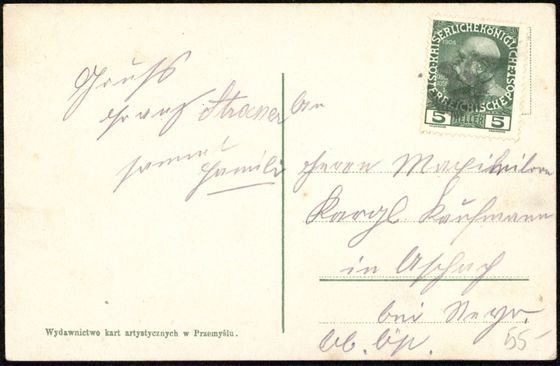 Gruß
Franz Straner
samt
Familie
Herrn Maximilian
Kargl Kaufmann
in Aschach
bei Steyr.
Ob. Öst.
55-
KAISERLICHE KÖNIGLICHE
ÖSTERREICHISCHE POST
1908
5 HELLER 5
Wydawnictwo kart artystycznych w Przemyślu.